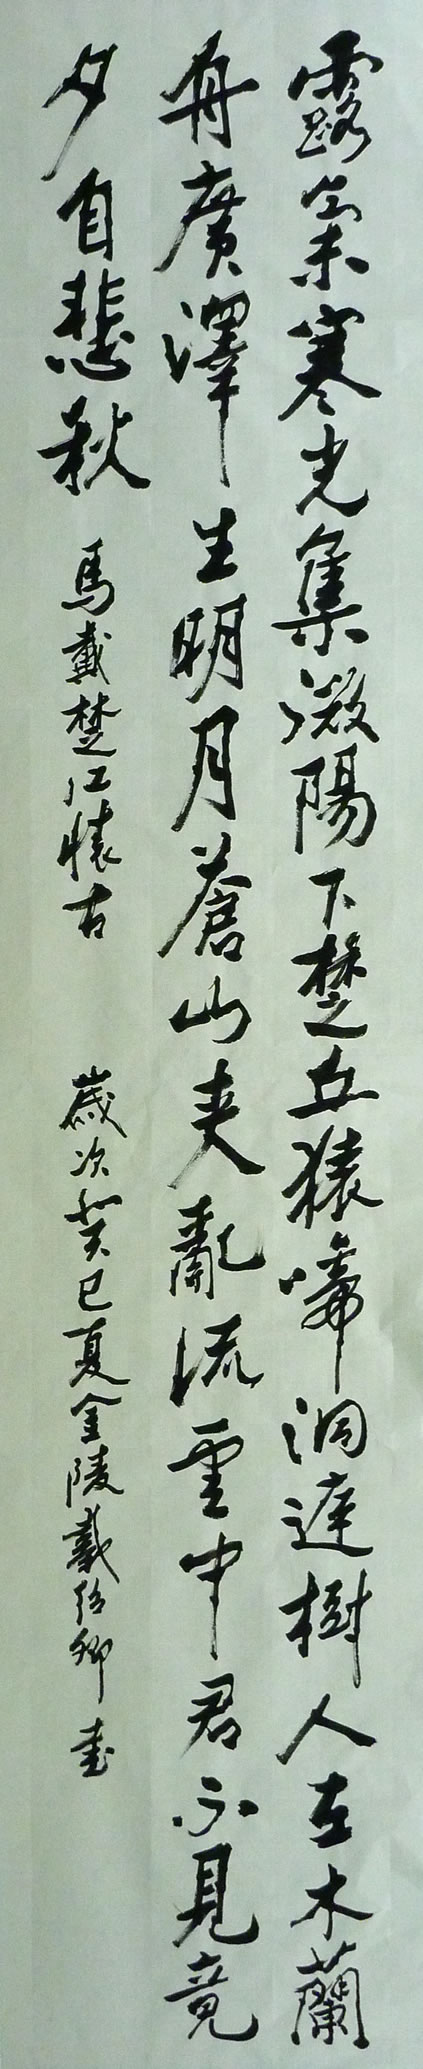 露氣寒光集微陽下楚丘猿啼洞庭樹人在木蘭
舟廣澤生明月蒼山夾亂流雲中君不見竟
夕自悲秋 馬戴楚江懷古 歲次癸巳夏金陵戴卿書